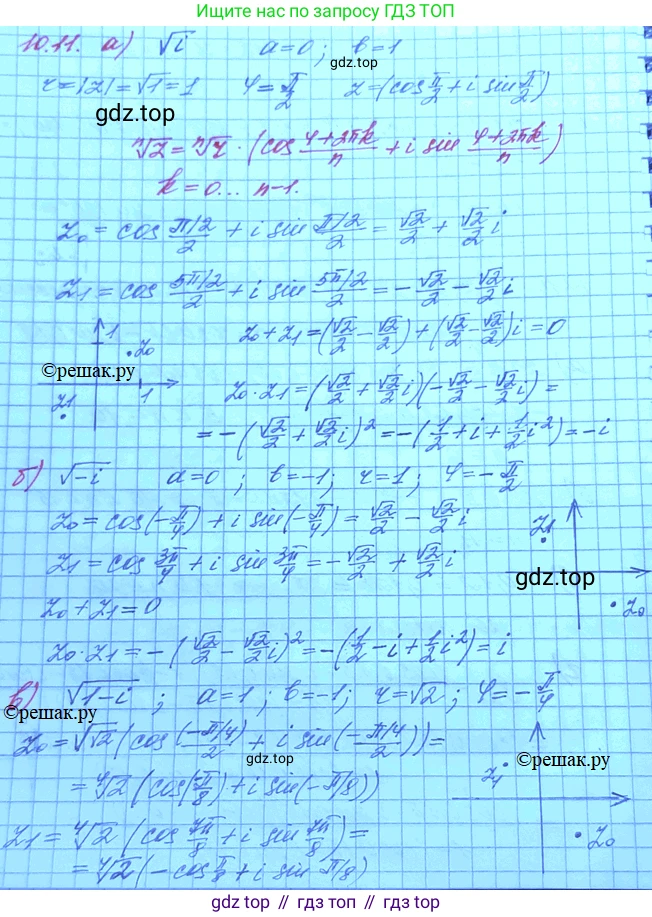 Ищите решения по запросу ГДЗ ТОП
10.11. а) √i a=0; b=1
r=|z|=√1=1 φ=π/2 z=(cos π/2 + i sin π/2)
gdz.top
ⁿ√z = ⁿ√r · (cos (φ+2πk)/n + i sin (φ+2πk)/n)
k=0... n-1.
z₀ = cos (π/2)/2 + i sin (π/2)/2 = √2/2 + √2/2 i
z₁ = cos (5π/2)/2 + i sin (5π/2)/2 = -√2/2 - √2/2 i
1 z₀ z₀+z₁=(√2/2 - √2/2)+(√2/2 - √2/2)i=0
©решак.ру
z₁ 1 z₀·z₁=(√2/2 + √2/2 i)(-√2/2 - √2/2 i)=
=-(√2/2 + √2/2 i)²=-(1/2+i+1/2 i²)=-i
б) √-i a=0; b=-1; r=1; φ=-π/2
z₀=cos(-π/4)+i sin(-π/4)=√2/2 - √2/2 i
z₁
z₁=cos 3π/4 + i sin 3π/4=-√2/2 + √2/2 i
gdz.top
z₀+z₁=0
z₀
z₀·z₁=-(√2/2 - √2/2 i)²=-(1/2-i+1/2 i²)=i
в) √1-i; a=1; b=-1; r=√2; φ=-π/4
©решак.ру
z₀=√√2(cos (-π/4)/2 + i sin(-π/4 /2))=
gdz.top
=⁴√2(cos(-π/8)+i sin(-π/8))
z₁ ©решак.ру
z₀
z₁=⁴√2(cos 7π/8+i sin 7π/8)=
=⁴√2(-cos π/8+i sin π/8)
gdz.top // гдз.топ // gdz.top // гдз.топ